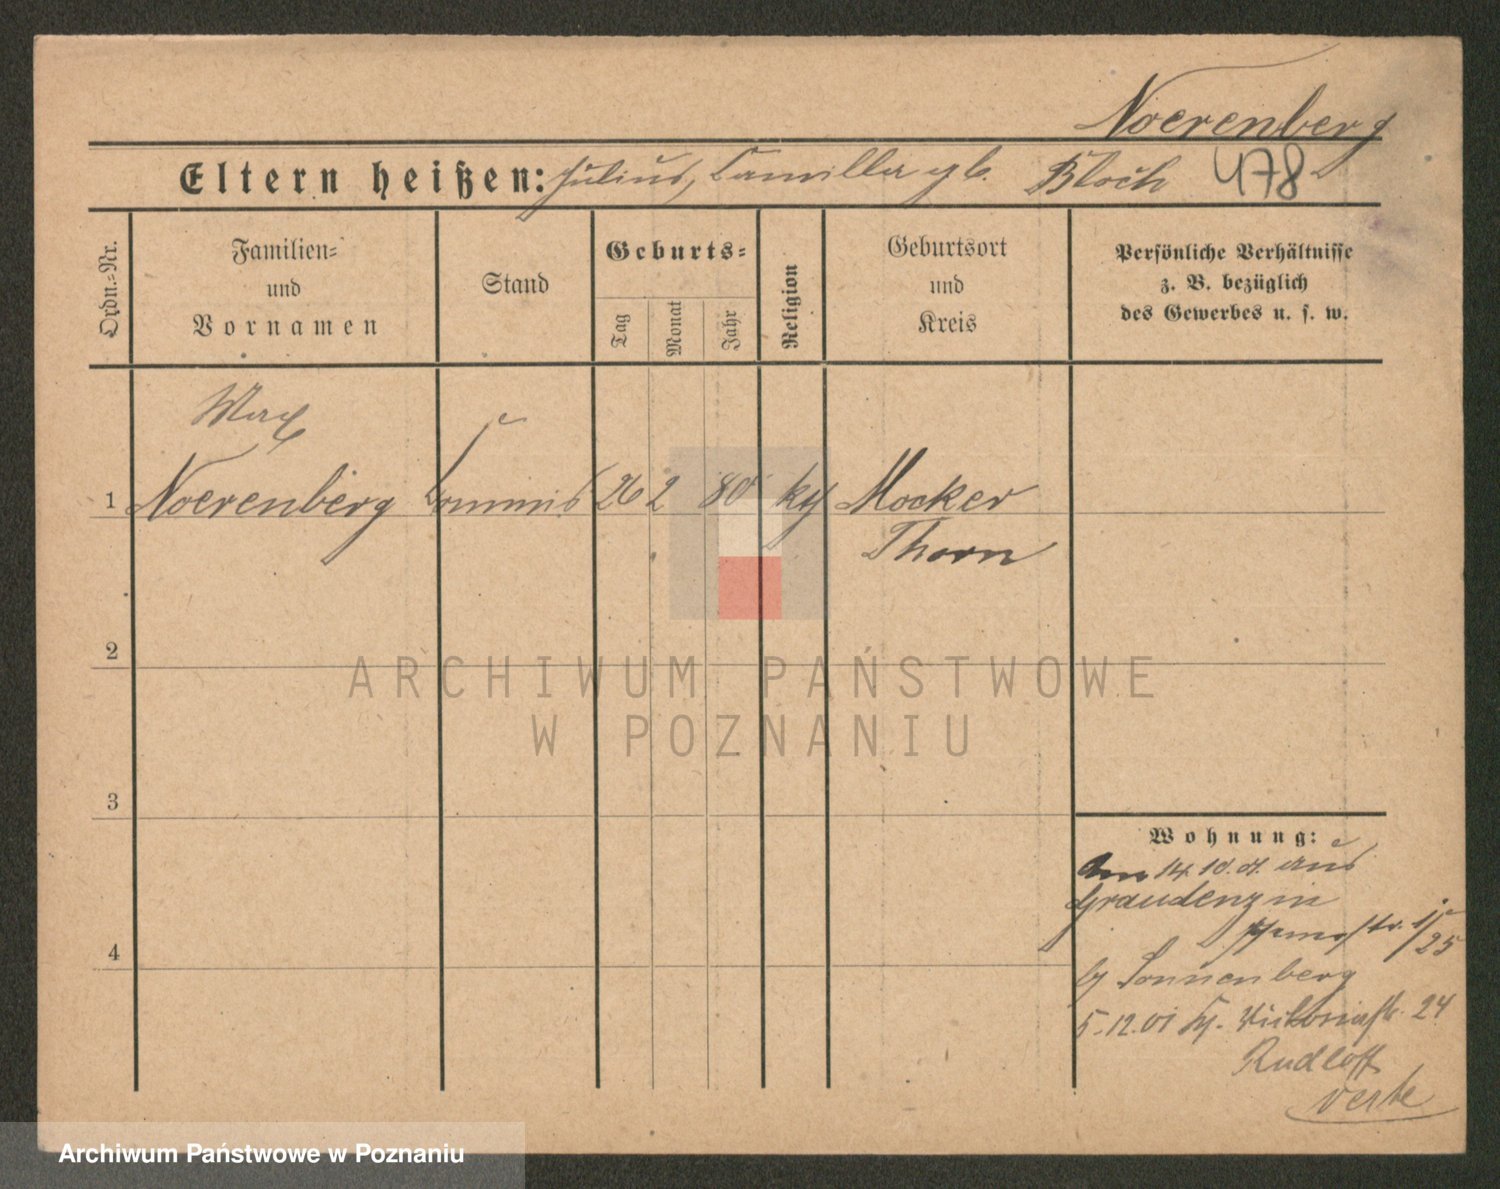 Noerenberg
Eltern heißen: Julius, Camilla gb. Bloch 478
Ordn.-Nr.
Familien-
und
Vornamen
Stand
Geburts-
Tag
Monat
Jahr
Religion
Geburtsort
und
Kreis
Persönliche Verhältnisse
z. B. bezüglich
des Gewerbes u. s. w.
Max
1 Noerenberg Commis 26 2 80 kth Mocker
Thorn
2
ARCHIWUM PAŃSTWOWE
W POZNANIU
3
Wohnung:
Am 14.10.01 aus
Graudenz in
25
by Sonnenberg
5.12.01 Viktoriastr. 24
Rudloff
verte
4
Archiwum Państwowe w Poznaniu